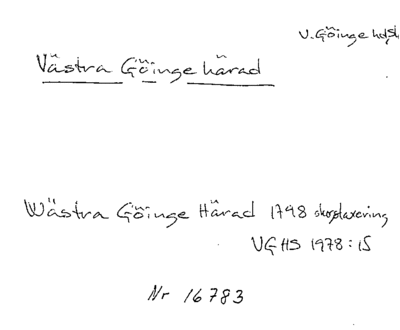 V. Göinge
Västra Göinge härad
Wästra Göinge Härad 1798 skogstaxering
VGHS 1978:15
Nr 16783